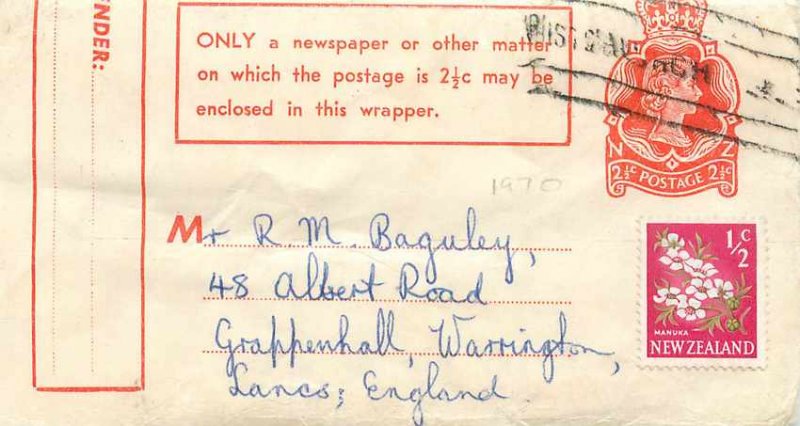 ENDER:
ONLY a newspaper or other matter
on which the postage is 2½c may be
enclosed in this wrapper.
N Z
2½c POSTAGE 2½c
1970
Mr R. M. Baguley,
48 Albert Road
Grappenhall, Warrington,
Lancs; England.
½c
MANUKA
NEW ZEALAND